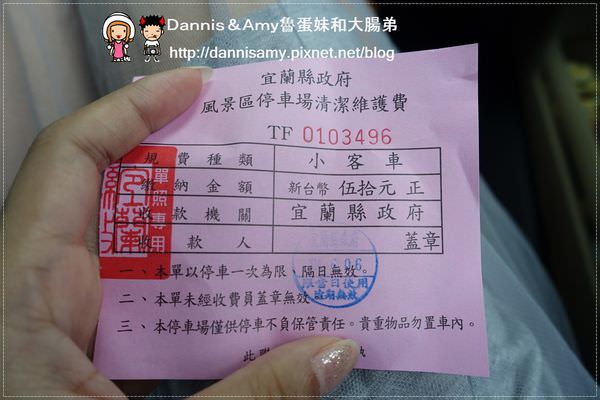 Dannis＆Amy魯蛋妹和大腸弟
http://dannisamy.pixnet.net/blog
宜蘭縣政府
風景區停車場清潔維護費
TF 0103496
規費種類 小客車
繳納金額 新台幣 伍拾元 正
收款機關 宜蘭縣政府
收款人 蓋章
單照專用
限當日使用
逾期無效
一、本單以停車一次為限、隔日無效。
二、本單未經收費員蓋章無效
三、本停車場僅供停車不負保管責任。貴重物品勿置車內。
此聯